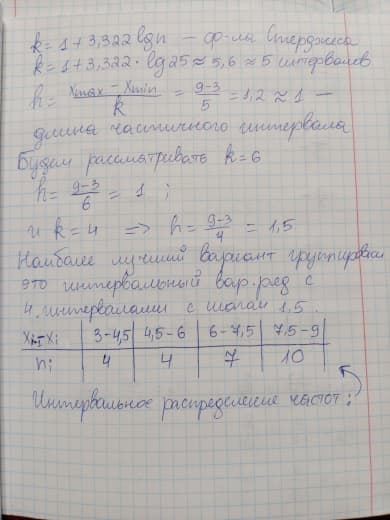 k = 1 + 3,322 lg n — ф-ла Стерджеса
k = 1 + 3,322 · lg 25 ≈ 5,6 ≈ 5 интервалов
h = (xmax - xmin)/k = (9-3)/5 = 1,2 ≈ 1 —
длина частичного интервала
Будем рассматривать k = 6
h = (9-3)/6 = 1 ;
и k = 4 => h = (9-3)/4 = 1,5
Наиболее лучший вариант группировки
это интервальный вар. ряд с
4 интервалами с шагом 1,5.
xi-1-xi | 3-4,5 | 4,5-6 | 6-7,5 | 7,5-9
ni | 4 | 4 | 7 | 10
Интервальное распределение частот: